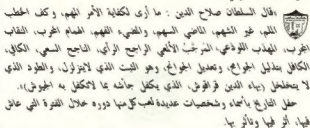 «قال السلطان صلاح الدين : ما أرى لكفاية الأمر المهم، وكف الخطب
الملم، غير الشهم، الماضي السهم، والمضيء الفهم، الهمام المحرب، النقاب
المجرب، المهذب اللوذعي، المرجب الألمعي الراجح الرأي، الناجح السعي، الكافي،
الكافل بتذليل الجوامح، وتعديل الجوانح، وهو الثبت الذي لا يتزلزل، والطود الذي
لا يتحلحل (بهاء الدين قراقوش، الذي يكفل جأشه بما لا تكفل به الجيوش)».
حفل التاريخ بأسماء وشخصيات عديدة لعب كل منها دوره خلال الفترة التي عاش
فيها، أثر فيها وتأثر بها.